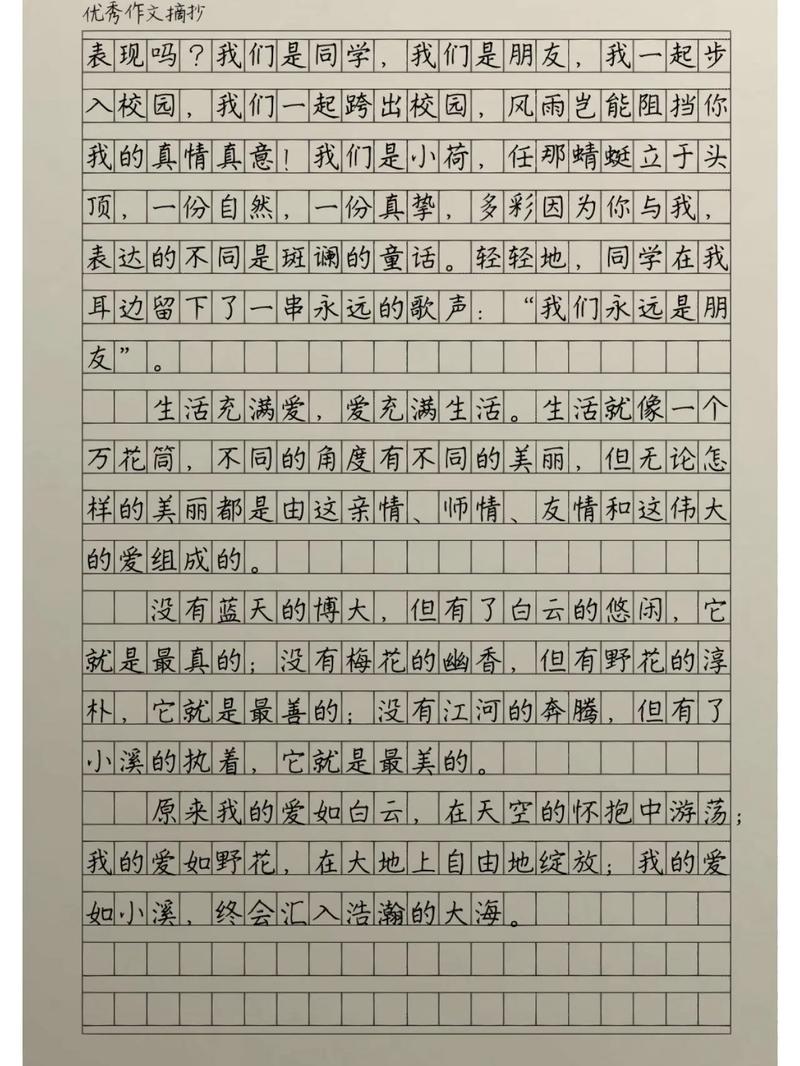 优秀作文摘抄
表现吗？我们是同学，我们是朋友，我一起步
入校园，我们一起跨出校园，风雨岂能阻挡你
我的真情真意！我们是小荷，任那蜻蜓立于头
顶，一份自然，一份真挚，多彩因为你与我，
表达的不同是斑斓的童话。轻轻地，同学在我
耳边留下了一串永远的歌声：“我们永远是朋
友”。
生活充满爱，爱充满生活。生活就像一个
万花筒，不同的角度有不同的美丽，但无论怎
样的美丽都是由这亲情、师情、友情和这伟大
的爱组成的。
没有蓝天的博大，但有了白云的悠闲，它
就是最真的；没有梅花的幽香，但有野花的淳
朴，它就是最善的；没有江河的奔腾，但有了
小溪的执着，它就是最美的。
原来我的爱如白云，在天空的怀抱中游荡；
我的爱如野花，在大地上自由地绽放；我的爱
如小溪，终会汇入浩瀚的大海。